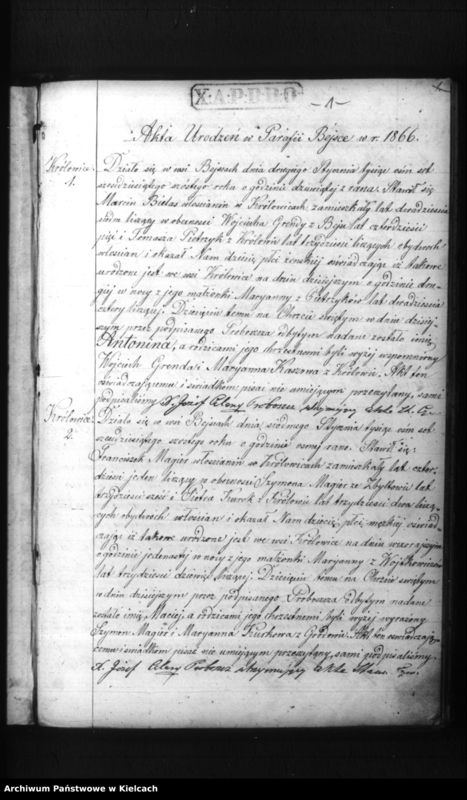 X·A·P·B·B·O
1
Akta Urodzeń w Parafii Bejsce w r. 1866.
Królowice
1.
Działo się w wsi Bejscach dnia drugiego Stycznia tysiąc ośm set
sześćdziesiątego szóstego roku o godzinie dziewiątej z rana. Stawił się
Marcin Bielas włościanin w Królowicach zamieszkały lat dwadzieścia
liczący w obecności Wojciecha Grendy z lat czterdzieści
pięć i Tomasza Pietrzyk z Królowic lat trzydzieści liczących obydwóch
włościan i okazał Nam dziecię płci żeńskiej oświadczając iż takowe
urodzone jest we wsi Królowice na dniu dzisiejszym o godzinie dru-
giej w nocy z jego małżonki Maryanny z Pietrzyków lat dwadzieścia
cztery liczącej. Dziecięciu temu na Chrzcie świętym w dniu dzisiej-
szym przez podpisanego Proboszcza odbytym nadane zostało imię
Antonina, a rodzicami jego chrzestnemi byli wyżej wspomniony
Wojciech Grenda i Maryanna z Królowic. Akt ten
oświadczającemu i świadkom pisać nie umiejącym przeczytany, sami
podpisaliśmy X. Józef Proboszcz utrzymujący Akta St. C.
Królowice
2.
Działo się w wsi Bejscach dnia siódmego Stycznia tysiąc ośm set
sześćdziesiątego szóstego roku o godzinie ósmej rano. Stawił się
Franciszek Magiera włościanin w Królowicach zamieszkały lat czter-
dzieści jeden liczący w obecności Szymona Magiera z lat
trzydzieści sześć i Piotra Kurek z Królowic lat trzydzieści dwa liczą-
cych obydwóch włościan i okazał Nam dziecię płci męzkiej oświad-
czając iż takowe urodzone jest we wsi Królowice na dniu wczorajszym
o godzinie jedenastej w nocy z jego małżonki Maryanny z Wójtkowiczów
lat trzydzieści dziewięć liczącej. Dziecięciu temu na Chrzcie świętym
w dniu dzisiejszym przez podpisanego Proboszcza odbytym nadane
zostało imię Maciej, a rodzicami jego chrzestnemi byli wyżej wyrażony
Szymon Magiera i Maryanna Kurkowa z Akt ten oświadczają-
cemu i świadkom pisać nie umiejącym przeczytany, sami podpisaliśmy
X. Józef Proboszcz utrzymujący Akta Stanu Cyw.
Archiwum Państwowe w Kielcach